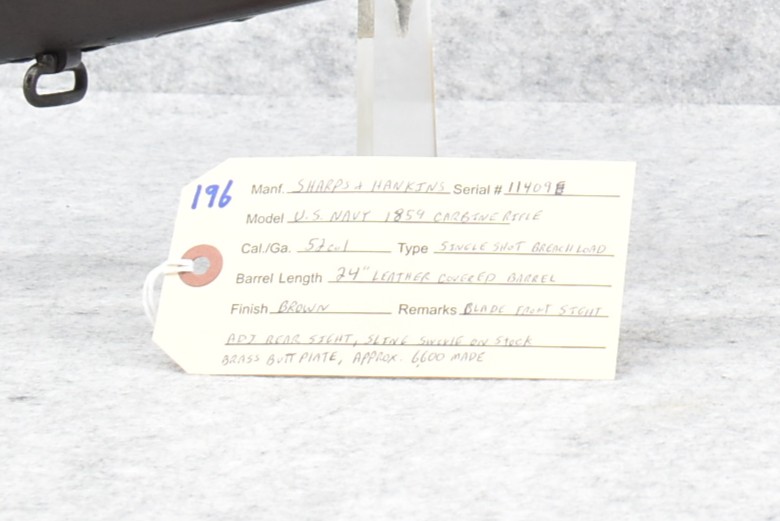 196
Manf. SHARPS & HANKINS Serial # 11409
Model U.S. NAVY 1859 CARBINE RIFLE
Cal./Ga. 52 cal Type SINGLE SHOT BREACH LOAD
Barrel Length 24" LEATHER COVERED BARREL
Finish BROWN Remarks BLADE FRONT SIGHT
ADJ REAR SIGHT, SLING SWIVLE ON STOCK
BRASS BUTT PLATE, APPROX. 6,600 MADE